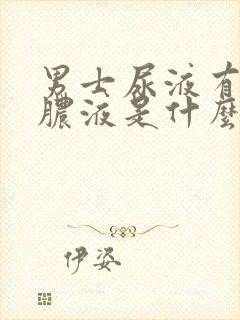 男士尿液有
膿液是什麼
伊姿